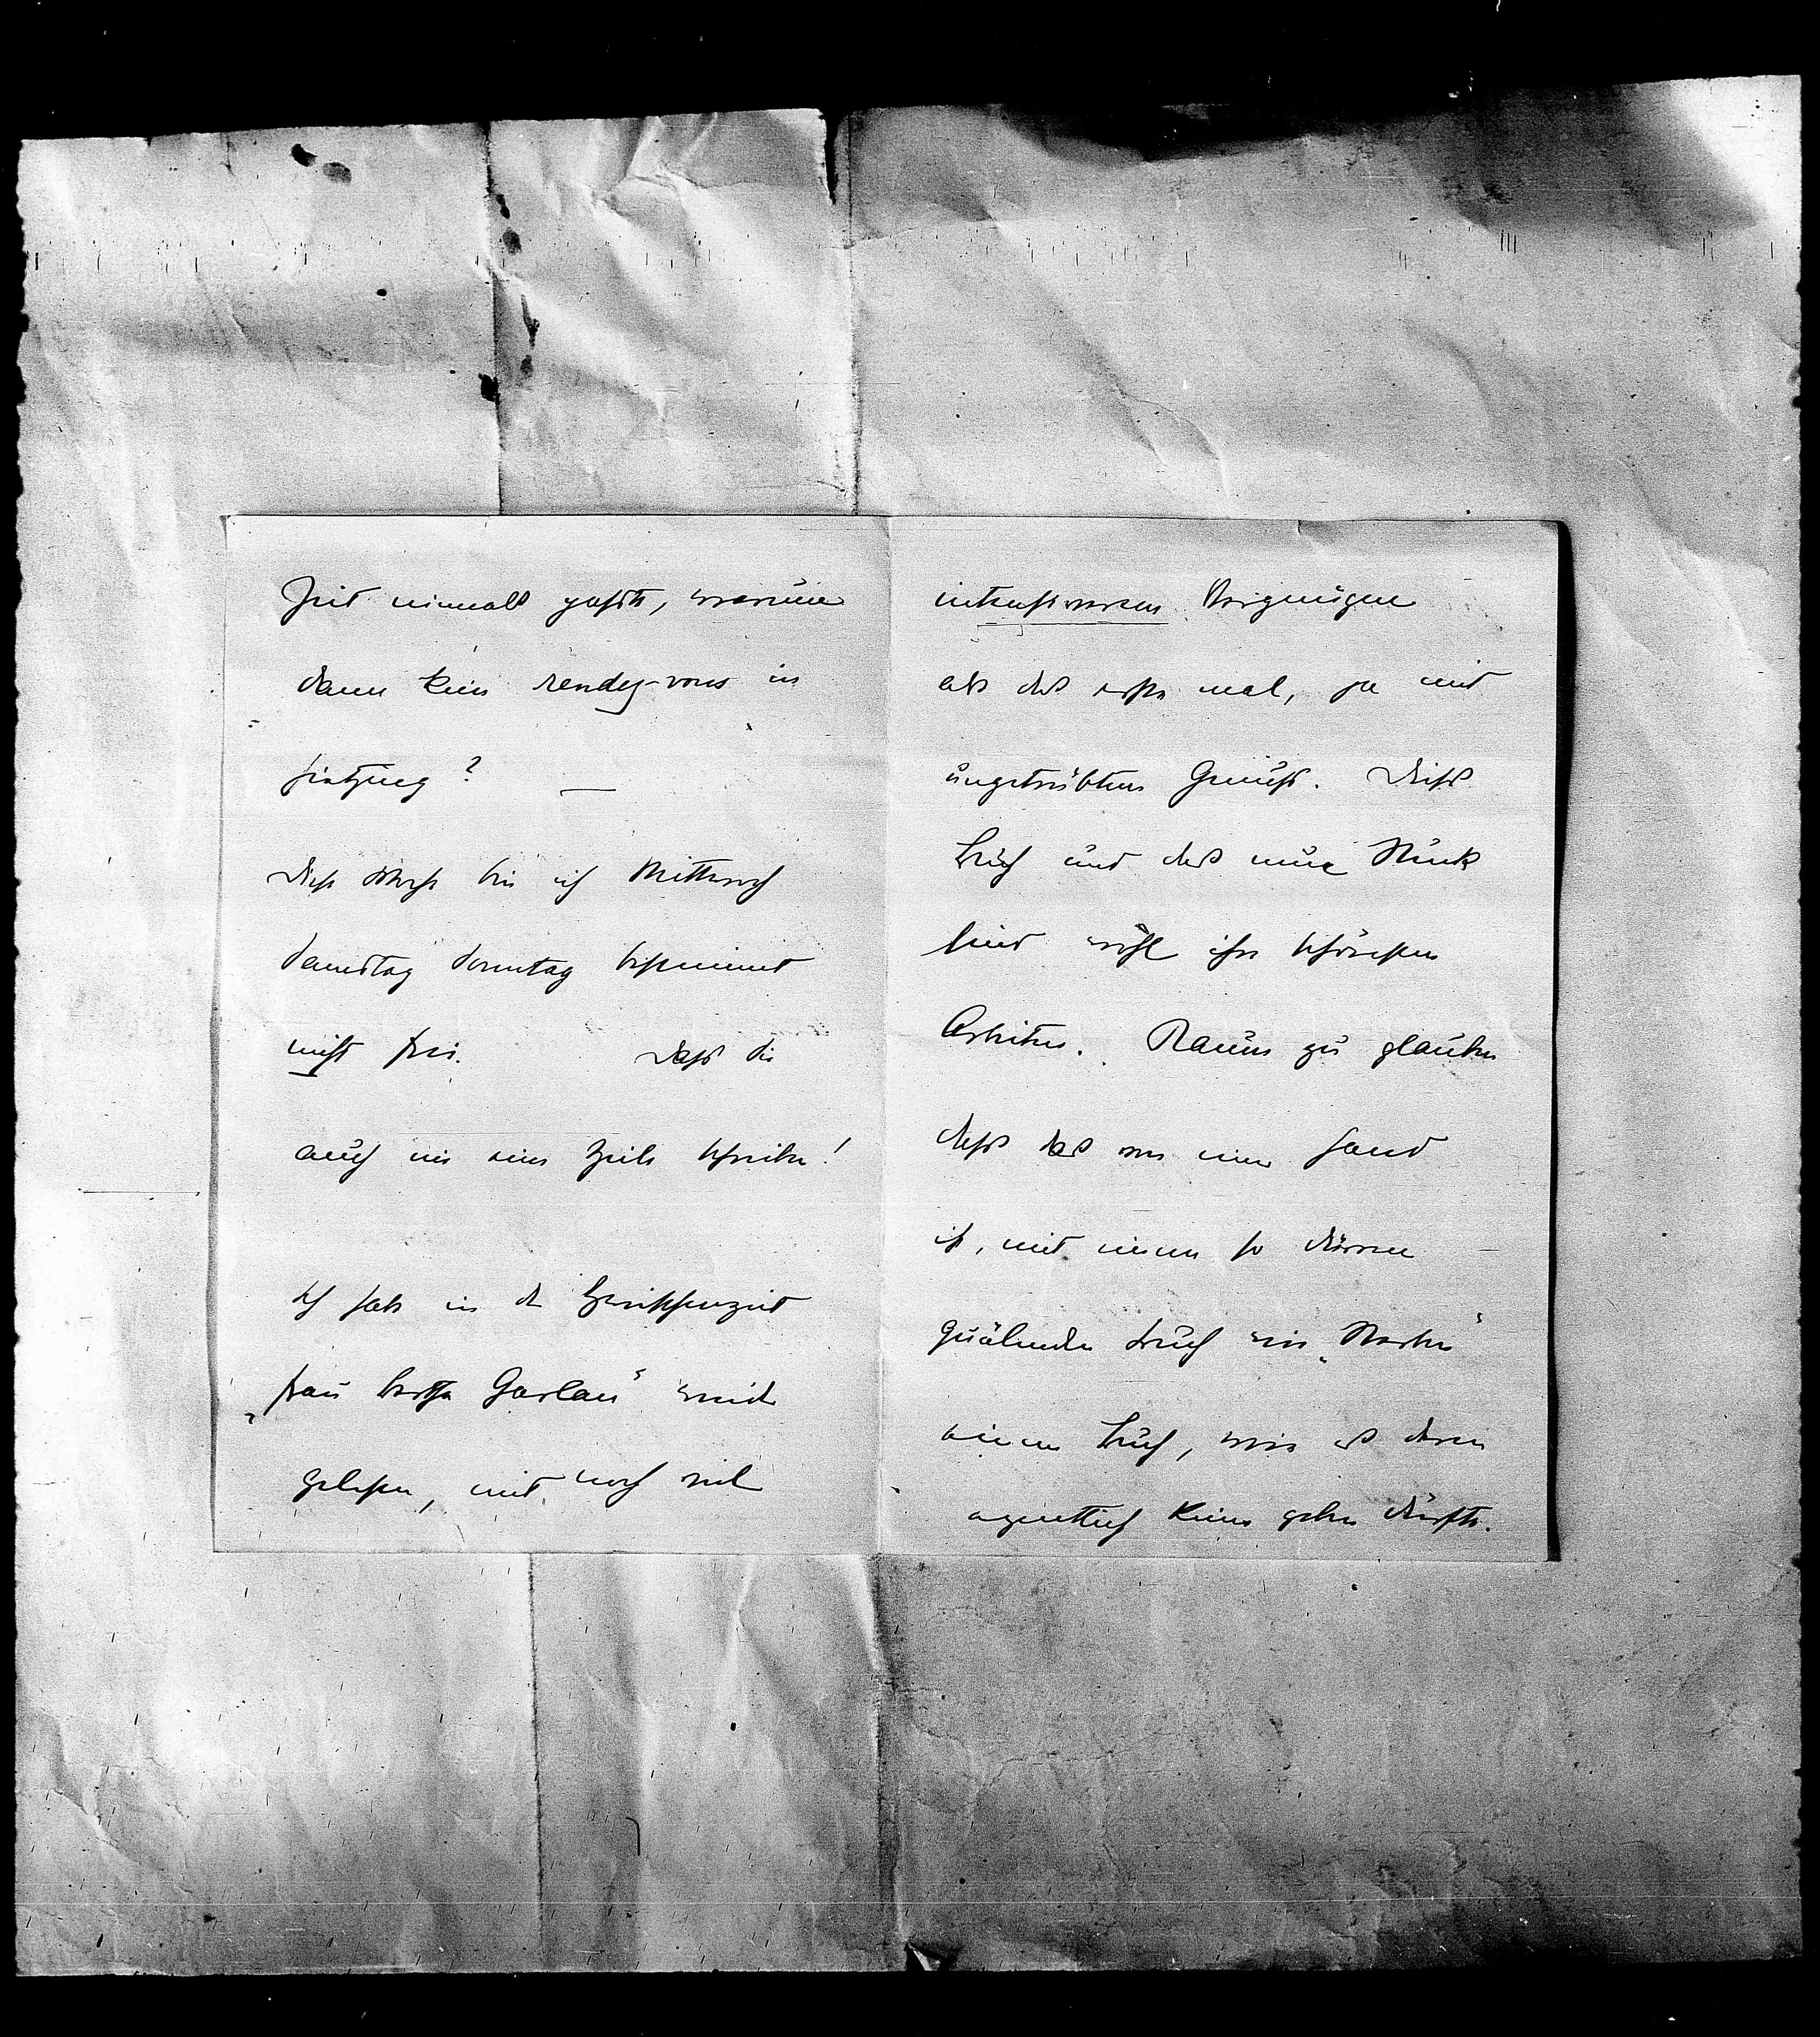 Zeit niemals passte, warum
dann kein rendez-vous in
Hietzing? —
Diese Woche bin ich Mittwoch
Samstag Sonntag bestimmt
nicht frei. Dass Sie
auch nie eine Zeile schreiben!
Ich habe in der Zwischenzeit
„Frau Bertha Garlan" wieder
gelesen, mit noch viel
intensiverem Vergnügen
als das erste mal, ja mit
ungetrübtem Genuss. Dieses
Buch und das neue Stück
sind wohl ihre schönsten
Arbeiten. Kaum zu glauben
dass das von einer Hand
ist, mit einem so dürren
quälenden Buch wie „Sterben"
einem Buch, wie es deren
eigentlich keine geben dürfte.